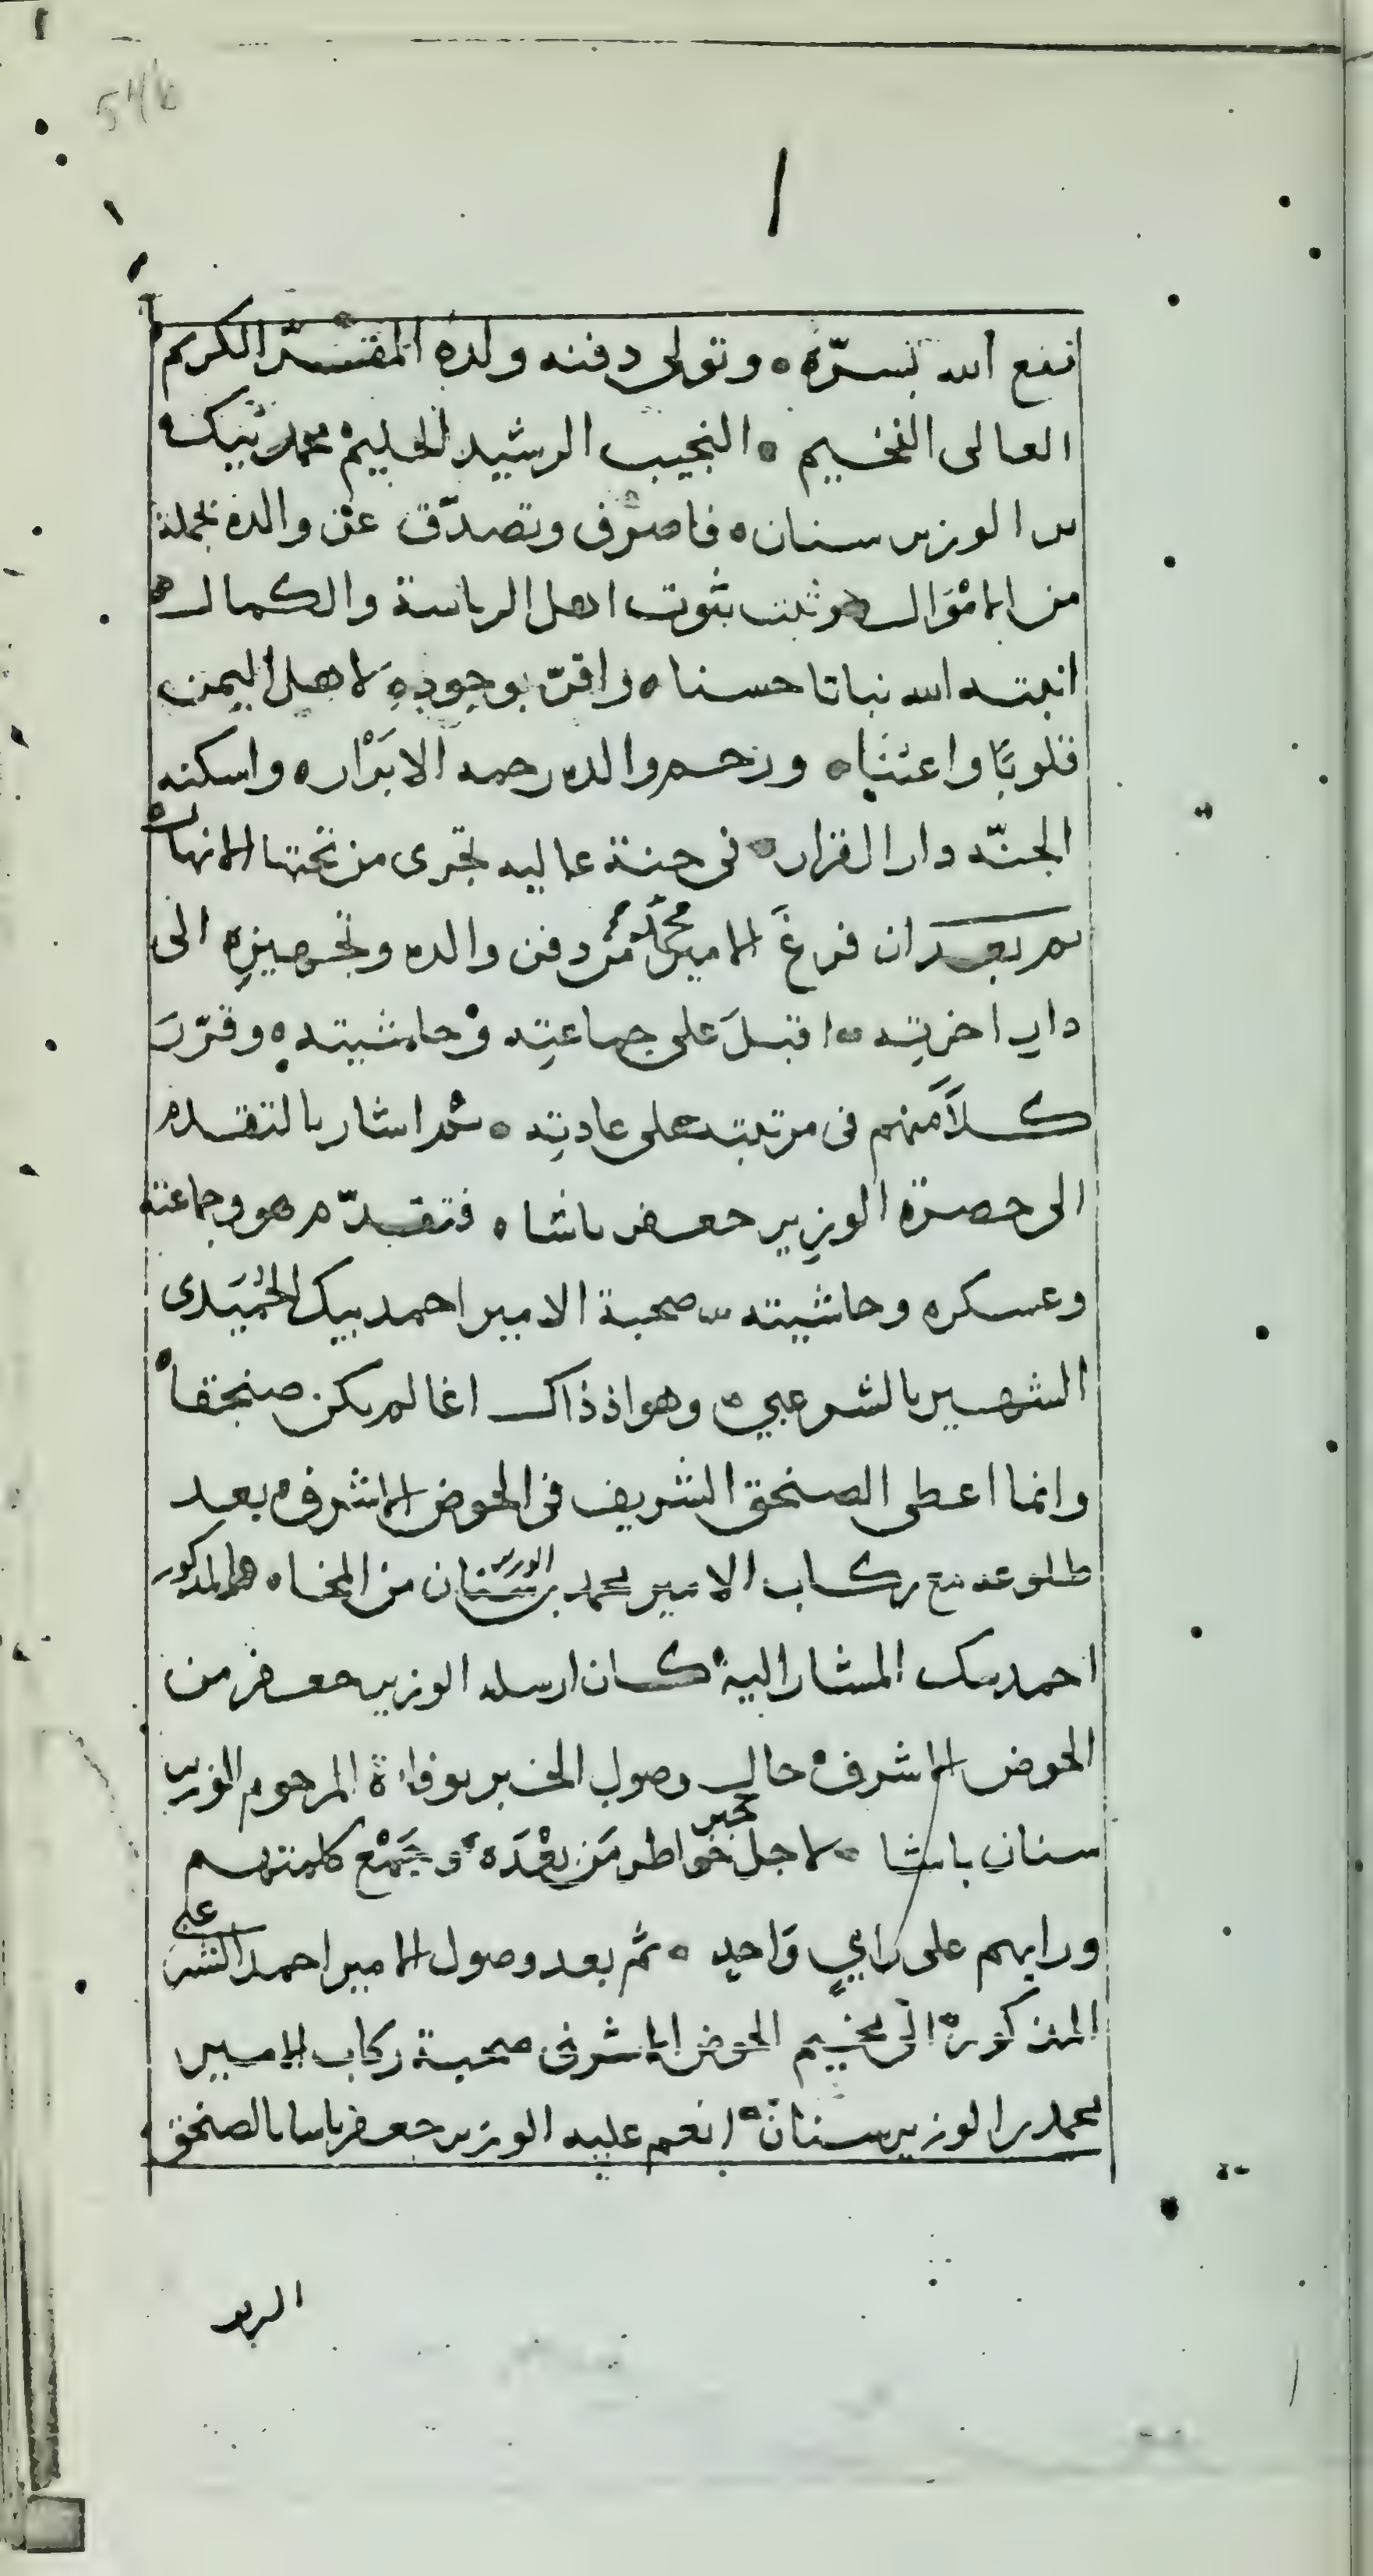 ١
نفع الله بسرّه وتولى دفنه ولده المقسر الكريم
العالى الفخيم النجيب الرشيد الحليم محمد بيك
بن الوزير سنان فاصرف وتصدّق عن والده بجملة
من الاموال وثبت ثبوت اهل الرياسة والكمال
انبته الله نباتا حسنا واقرّ بوجوده لاهل اليمن
قلوبًا واعينا ورحم والده رحمه الابرار واسكنه
الجنّه دار القرار فى جنة عاليه تجرى من تحتها الانهار
ثم بعد ان فرغَ الامير محمد من دفن والده وتجهيزه الى
دار اخرته اقبلَ على جماعته وحاشيته وقرّرَ
كلاً منهم فى مرتبته على عادته ثم اشار بالتقدم
الى حضرة الوزير جعفر باشا فتقدّم هو وجماعته
وعسكره وحاشيته صحبة الامير احمد بيك الحُمَيدى
الشهير بالشرعبي وهو اذ ذاك اغا لم يكن صنجقا
وانما اعطى الصنجق الشريف فى الحوض الاشرف بعد
طلوعه مع ركاب الامير محمد بن الوزير سنان من المخا المذكور
احمد بيك المشار اليه كان ارسله الوزير جعفر من
الحوض الاشرف حال وصول الخبر بوفاة المرحوم الوزير
سنان باشا لاجل جبر خواطر مَن بعْدَه وجَمْع كلمتهم
ورايهم على رايٍ واحدٍ ثم بعد وصول الامير احمد الشرعبي
المذكور الى مخيم الحوض الاشرفى صحبة ركاب الامير
محمد بن الوزير سنان انعم عليه الوزير جعفر باشا بالصنجق